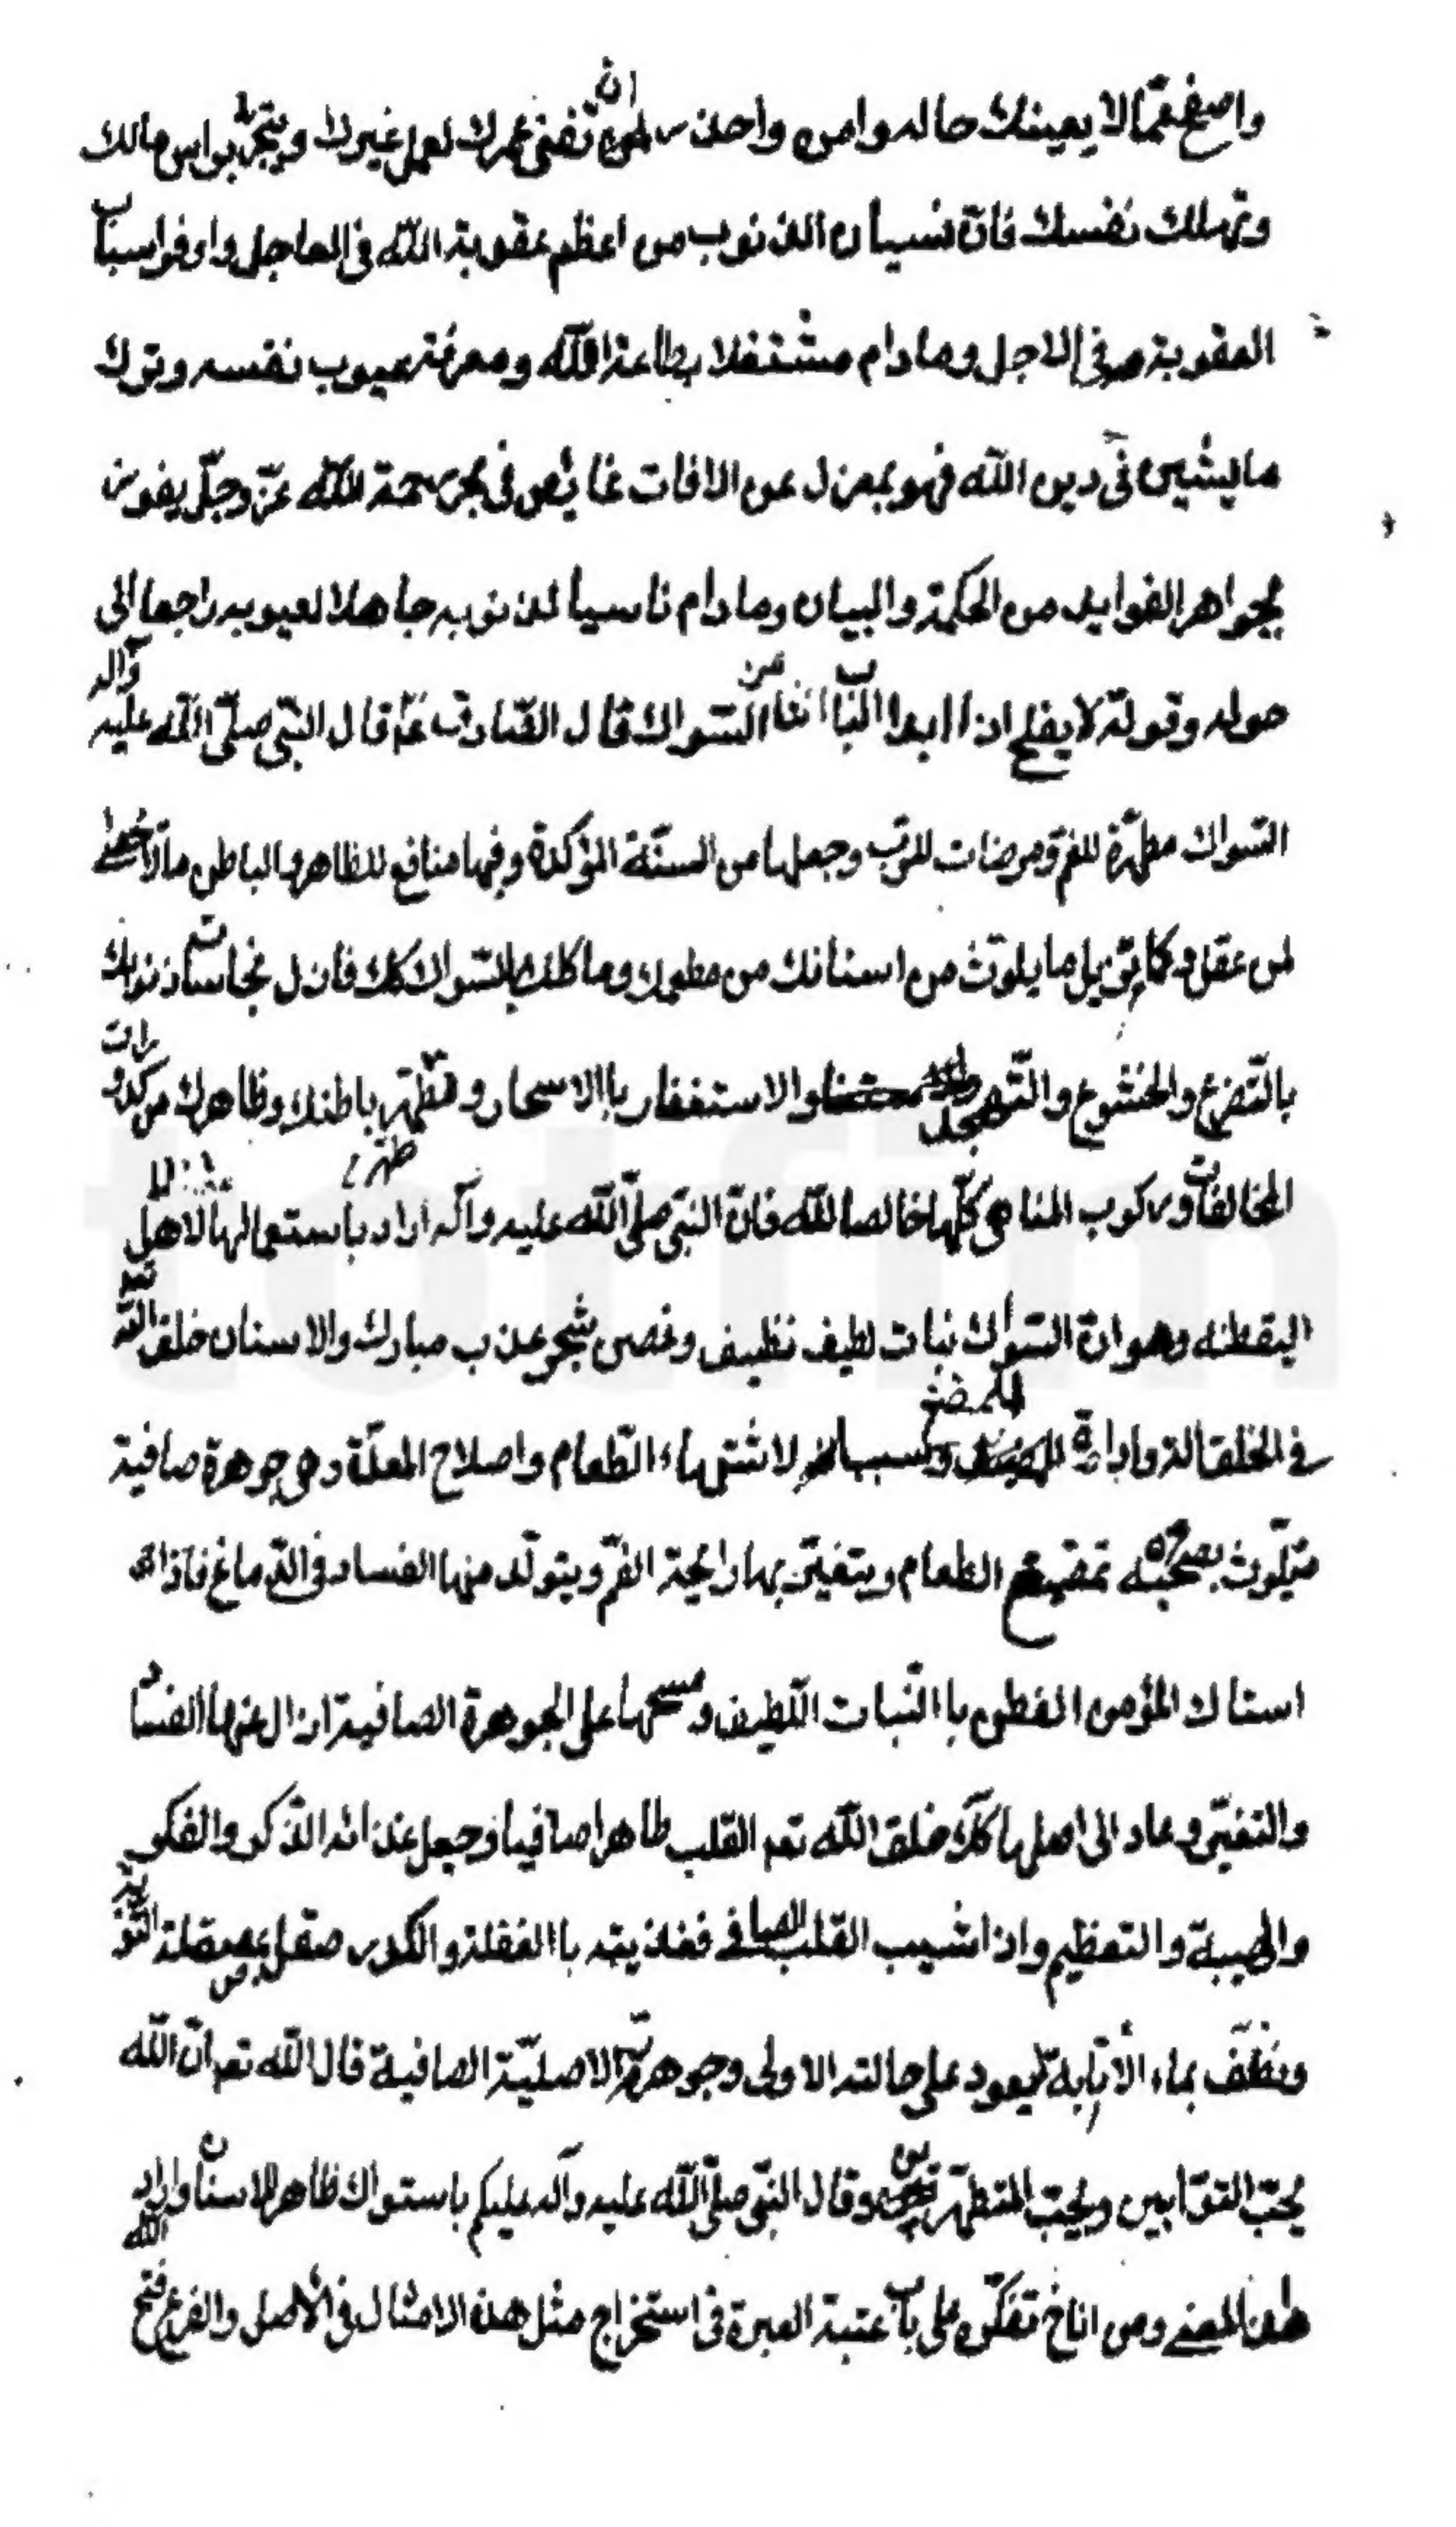 واصفح عمّا لا يعينك حاله وامره واحذر ان تفنى عمرك لعمل غيرك ويتجر براس مالك
وتهلك نفسك فانّ نسيان الذنوب من اعظم عقوبة الله فى العاجل واوفر اسباب
العقوبة فى الاجل ومادام مشتغلا بطاعة الله ومعرفة عيوب نفسه وترك
ما يشين فى دين الله فهو بمعزل عن الافات غائص فى بحر رحمة الله عزّ وجلّ يفوز
بجواهر الفوايد من الحكمة والبيان ومادام ناسيا لذنوبه جاهلا لعيوبه راجعا الى
حوله وقوته لا يفلح اذا ابدا الباب السواك قال الصّادق ع قال النبّى صلّى الله عليه وآله
السّواك مطهّرة للفم ومرضات للرّب وجعلها من السنّة المؤكدة وفيها منافع للظاهر والباطن ما لا يحصى
لمن عقل وكما تزيل ما يلوث من اسنانك من مطعمك وماكلك بالسّواك كك فازل نجاسة ذنوبك
بالتّضرع والخشوع والتّهجد والاستغفار باالاسحار وطهّر باطنك وظاهرك من كدورات
المخالفات وركوب المناهى كلّها خالصا لله فانّ النبّى صلّى الله عليه وآله اراد باستعمالها لاهل
اليقظه وهو انّ السّواك نبات لطيف نظيف وغصن شجر عذب مبارك والاسنان خلق الله تعه
فى الخلق الة واداة للمضغ وسببا لاشتهاء الطّعام واصلاح المعدة وهى جوهرة صافية
تتلوث بصحبة تمضيغ الطعام ويتغيّر بها رايحة الفمّ ويتولّد منها الفساد فى الدّماغ فاذا
استاك المؤمن الفطن باالنّبات اللّطيف ومسحها على الجوهرة الصافية ازال عنها الفساد
والتغيّر وعاد الى اصلها كك خلق الله تعه القلب طاهرا صافيا وجعل غذائه الذّكر والفكر
والهيبة والتعظيم واذا شيب القلب الصافى فغذيته باالغفلة والكدر صقل بمصقلة التوبة
ونظّف بماء الانابة ليعود على حالته الاولى وجوهرته الاصليّة الصافية قال الله تعه انّ الله
يحبّ التوّابين ويحبّ المتطهّرين وقال النبّى صلّى الله عليه وآله عليكم باستواك ظاهر الاسنان واراد
هذا المعنى ومن اناخ تفكّره على باب عتبة العبرة فى استخراج مثل هذه الامثال فى الاصل والفرع فتح الله